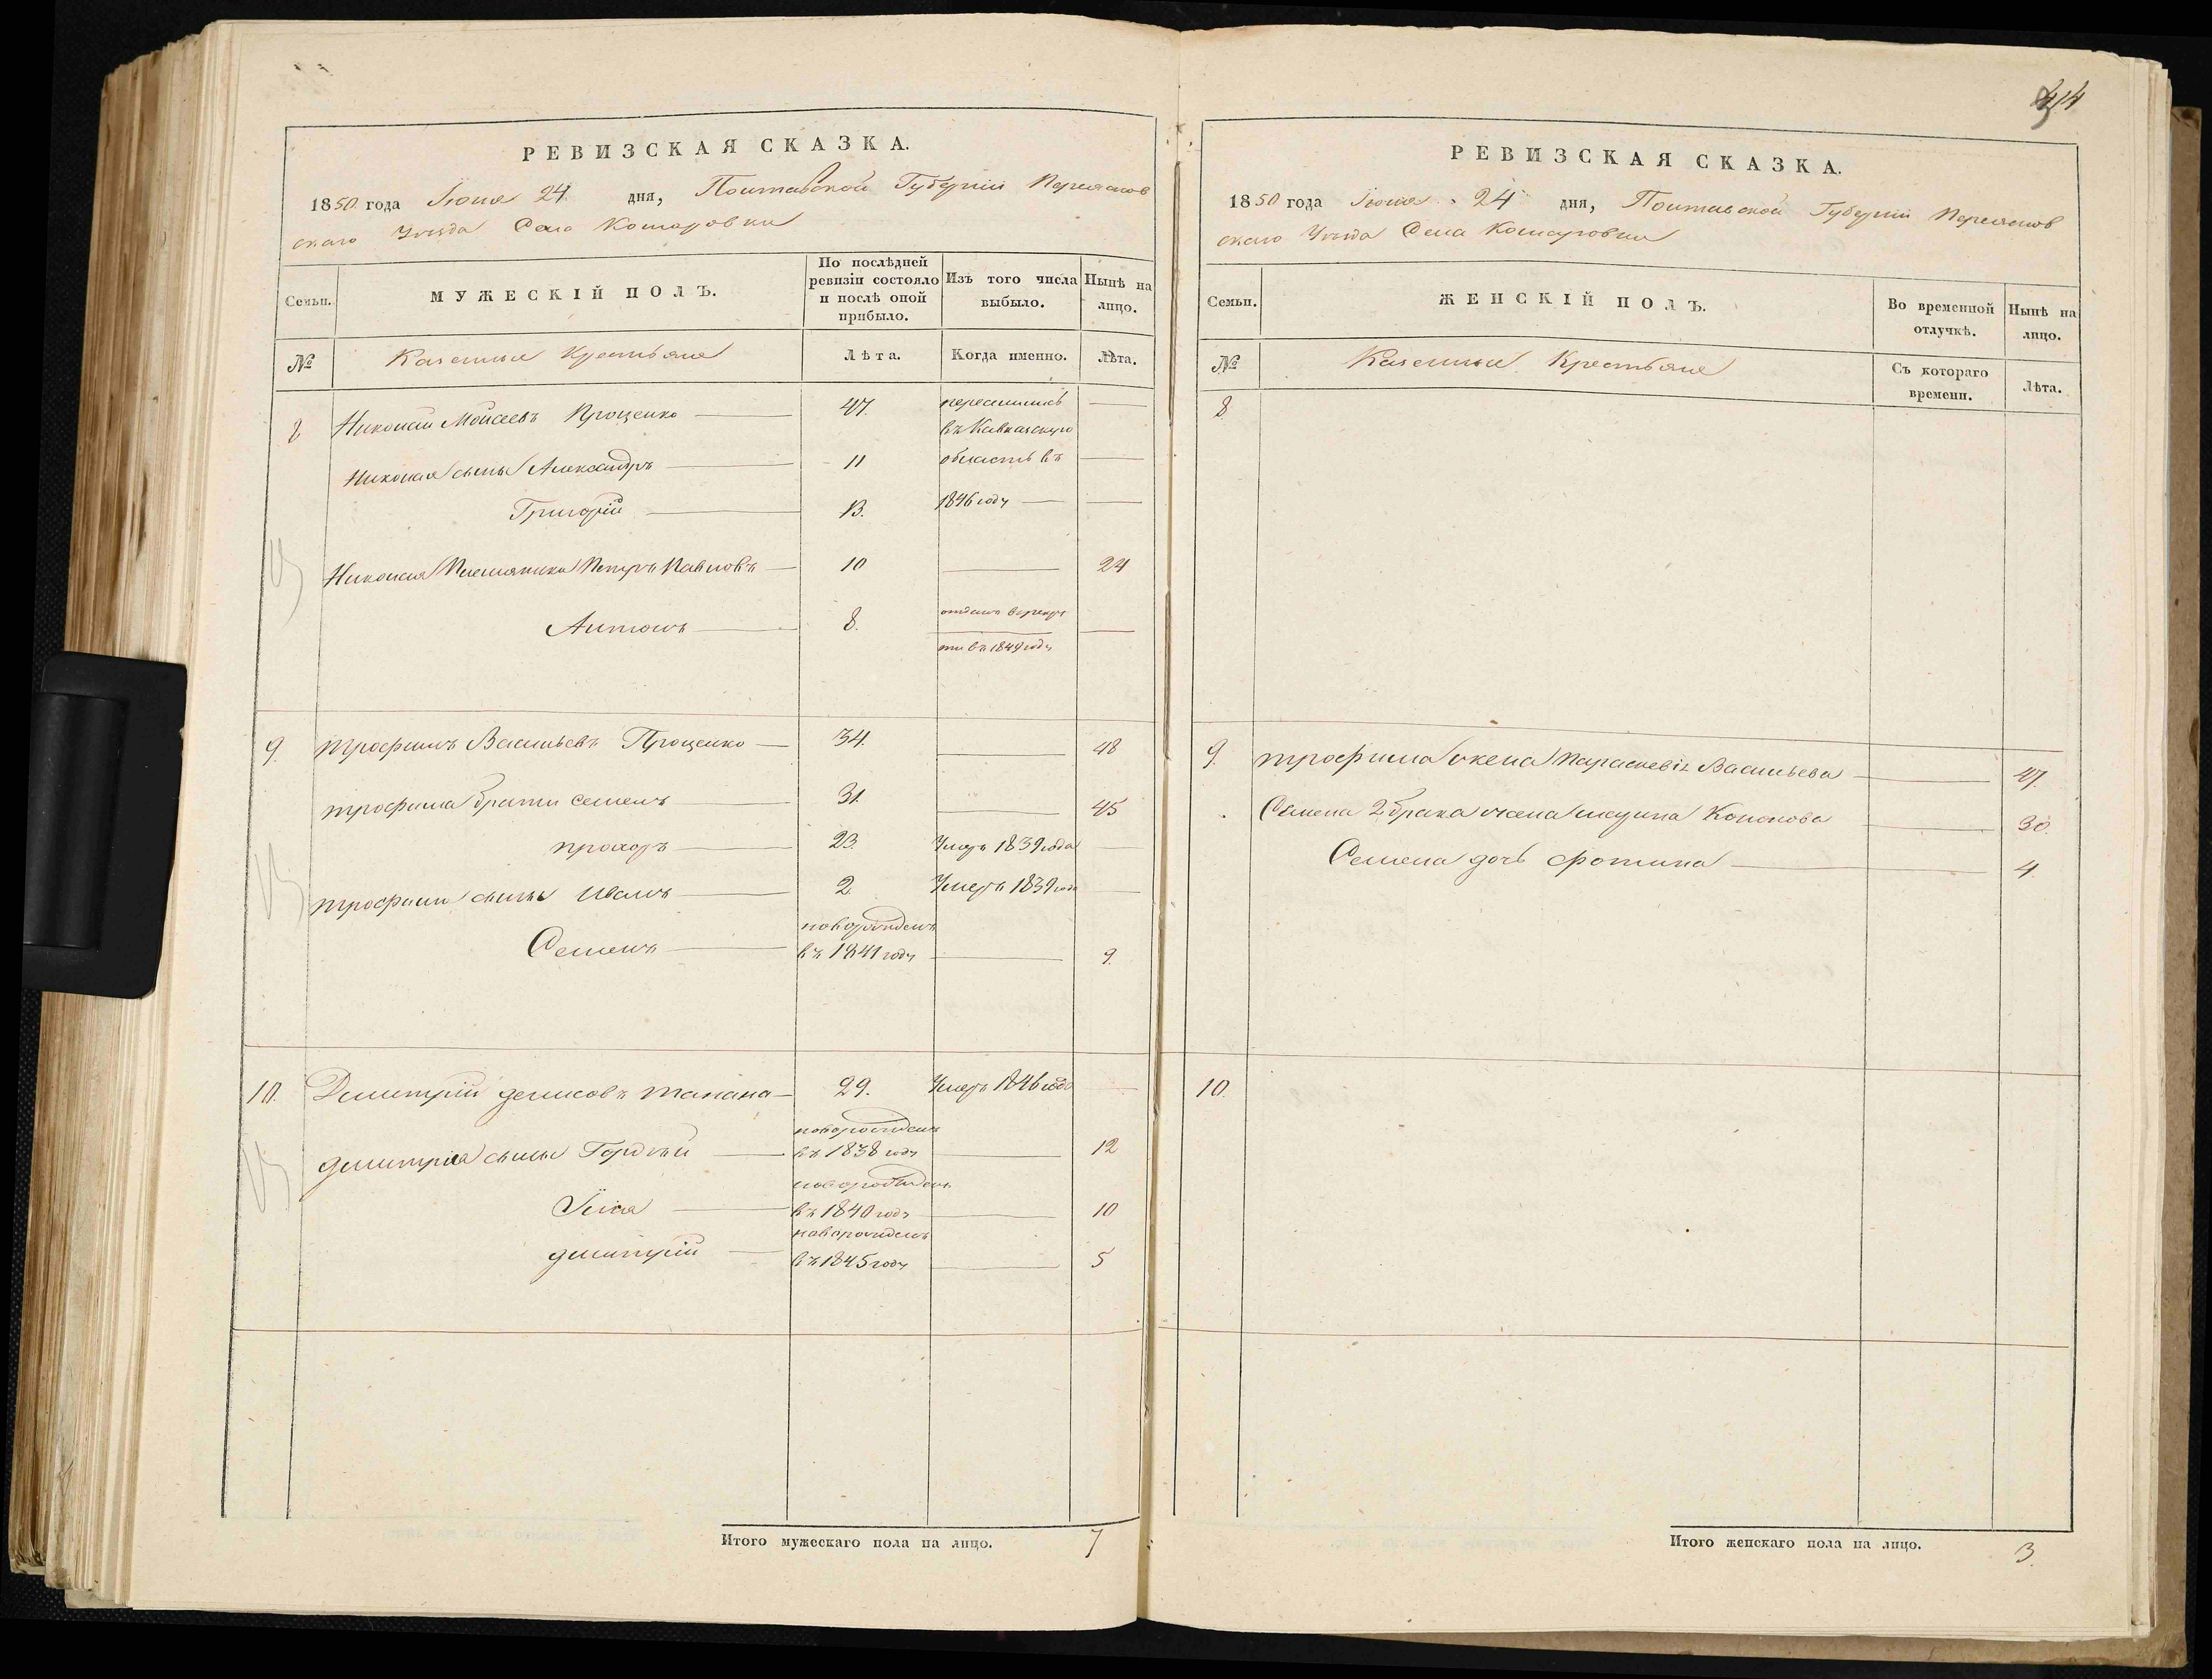 РЕВИЗСКАЯ СКАЗКА.
1850 года Іюня 24 дня, Полтавской Губерніи Переяслов
скаго Уѣзда Села Комаровки
Семьи.
МУЖЕСКІЙ ПОЛЪ.
По послѣдней ревизіи состояло и послѣ оной прибыло.
Изъ того числа выбыло.
Нынѣ на лицо.
№
Казенные Крестьяне
Лѣта.
Когда именно.
Лѣта.
8 Николай Моисеевъ Проценко 47. переселились
въ Кавказскую
Николая сынъ Александръ 11 область въ
Григорій 13. 1846 году
Николая Племянники Петръ Павловъ 10 24
Антонъ 8. отданъ в рекру
ты въ 1849 году
9. трофимъ Васильевъ Проценко 34. 48
трофима братъ семенъ 31. 45
прохоръ 23. Умеръ 1839 года
трофима сынъ Иванъ 2. Умеръ 1839 года
новорожденъ
Семенъ въ 1841 году 9.
10. Димитрій денисовъ 29. Умеръ 1846 года
новорожденъ
димитрія сынъ Гордѣй въ 1838 году 12
новорожденъ
Илія въ 1840 году 10
новорожденъ
димитрій въ 1845 году 5
Итого мужескаго пола на лицо. 7
РЕВИЗСКАЯ СКАЗКА.
1850 года Іюня 24 дня, Полтавской Губерніи Переяслов
скаго Уѣзда Села Комаровки
Семьи.
ЖЕНСКІЙ ПОЛЪ.
Во временной отлучкѣ.
Нынѣ на лицо.
№
Казенные Крестьяне
Съ котораго времени.
Лѣта.
8
9. трофима жена Параскевія Васильева 47.
Семена 2 брака жена Кононова 30.
Семена дочь фотина 4
10.
Итого женскаго пола на лицо. 3.